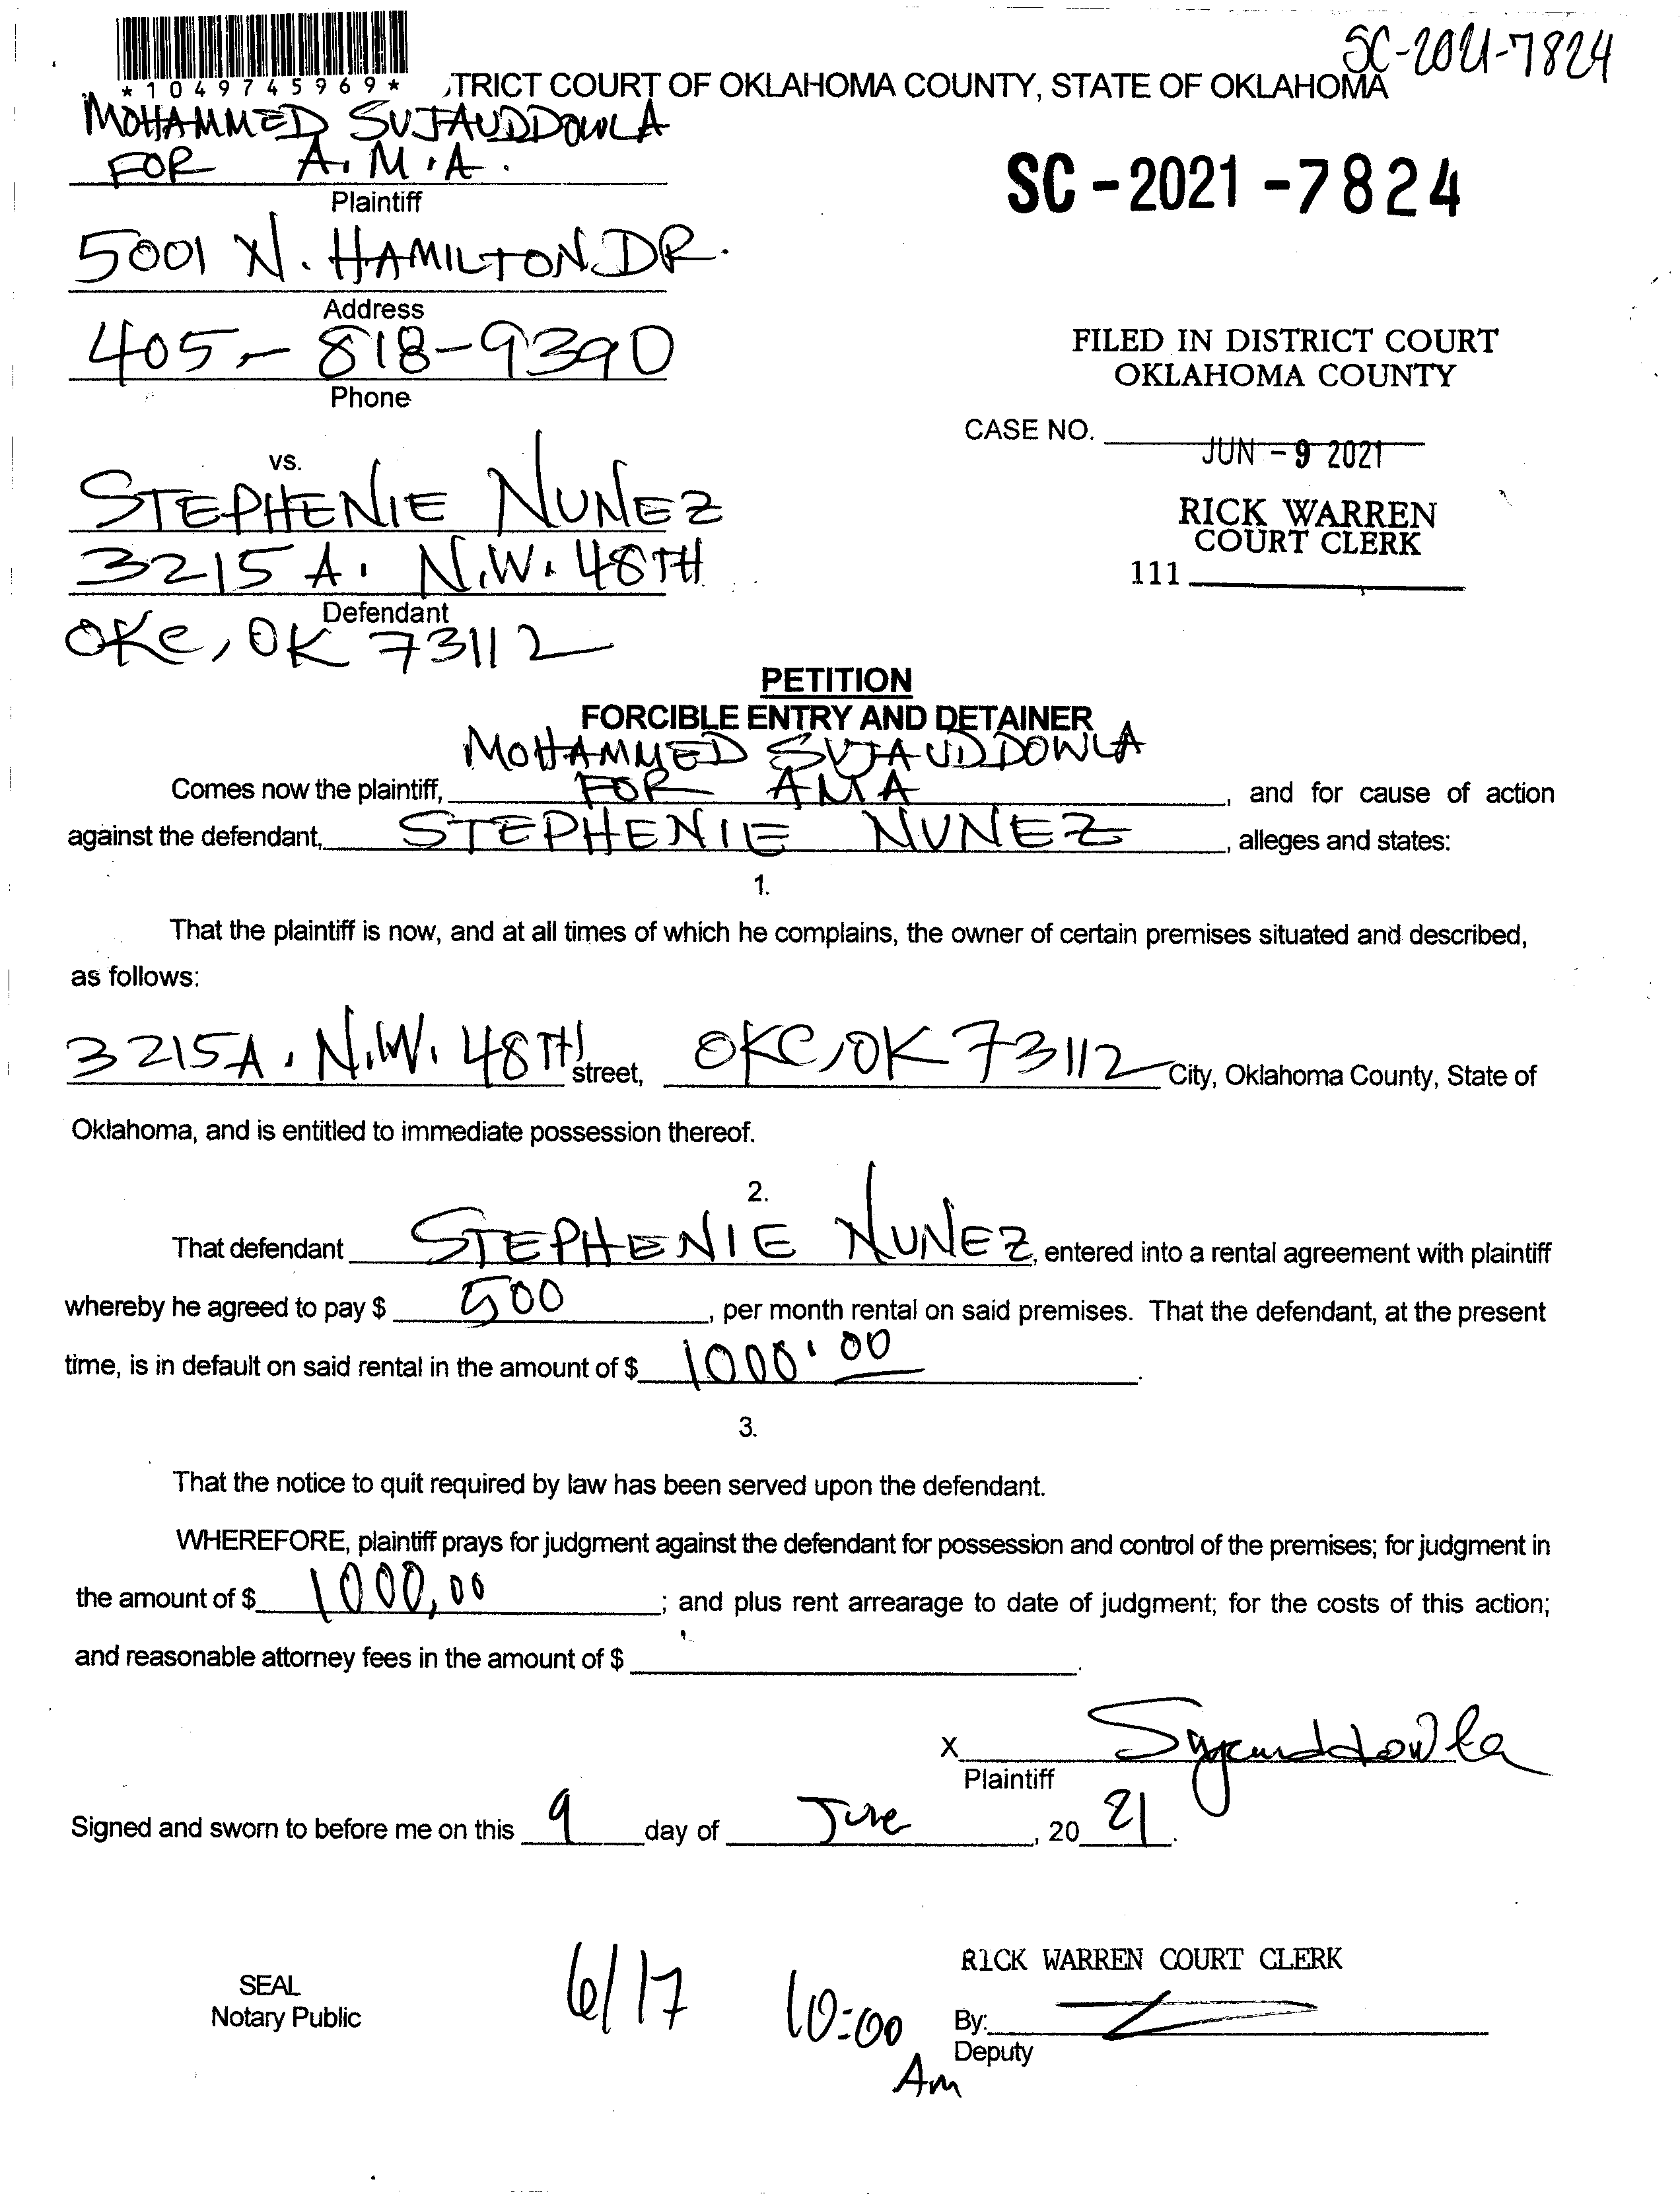 SC-2021-7824
*1049745969*
TRICT COURT OF OKLAHOMA COUNTY, STATE OF OKLAHOMA
MOHAMMED SUJAUDDOWLA
FOR A.M.A.
Plaintiff
SC-2021-7824
5001 N. HAMILTON DR.
Address
405-818-9390
Phone
FILED IN DISTRICT COURT
OKLAHOMA COUNTY
CASE NO.
JUN - 9 2021
vs.
STEPHENIE NUNEZ
RICK WARREN
COURT CLERK
3215 A. N.W. 48TH
111
Defendant
OKC, OK 73112
PETITION
FORCIBLE ENTRY AND DETAINER
MOHAMMED SUJAUDDOWLA
Comes now the plaintiff, FOR AMA, and for cause of action
against the defendant, STEPHENIE NUNEZ, alleges and states:
1.
That the plaintiff is now, and at all times of which he complains, the owner of certain premises situated and described,
as follows:
3215A. N.W. 48TH street, OKC, OK 73112 City, Oklahoma County, State of
Oklahoma, and is entitled to immediate possession thereof.
2.
That defendant STEPHENIE NUNEZ, entered into a rental agreement with plaintiff
whereby he agreed to pay $ 500, per month rental on said premises. That the defendant, at the present
time, is in default on said rental in the amount of $ 1000.00.
3.
That the notice to quit required by law has been served upon the defendant.
WHEREFORE, plaintiff prays for judgment against the defendant for possession and control of the premises; for judgment in
the amount of $ 1000,00; and plus rent arrearage to date of judgment; for the costs of this action;
and reasonable attorney fees in the amount of $ .
X Sujauddowla
Plaintiff
Signed and sworn to before me on this 9 day of June, 20 21.
RICK WARREN COURT CLERK
SEAL
Notary Public
6/17 10:00 Am
By:
Deputy